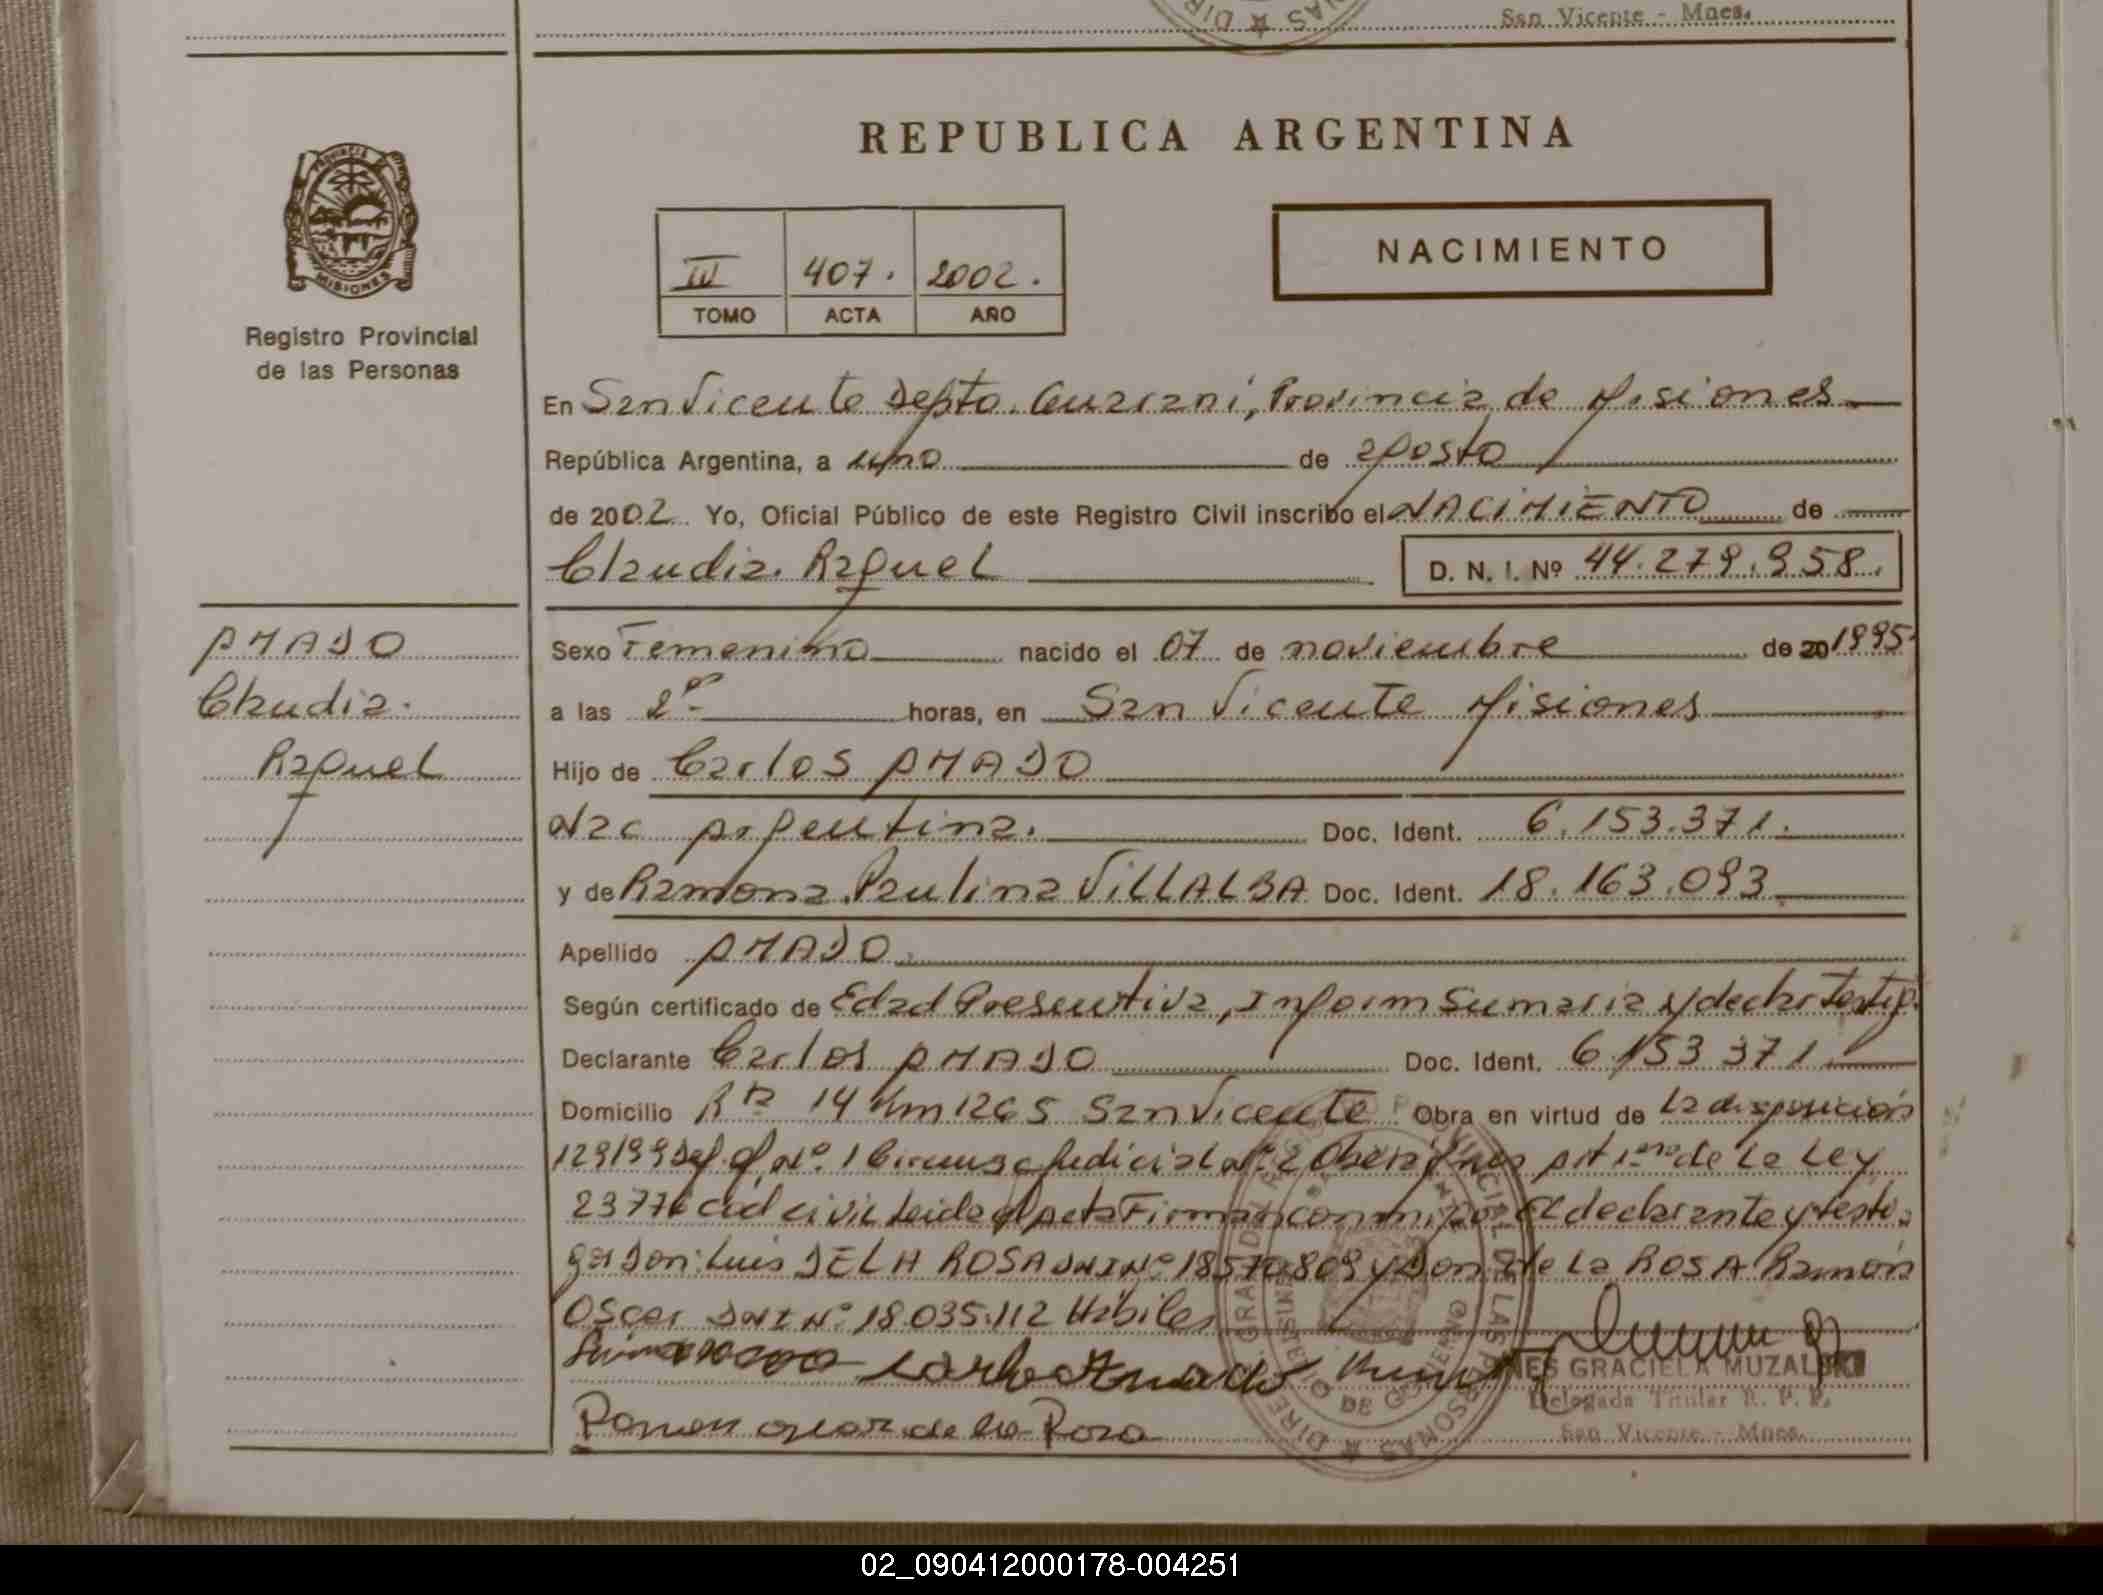 San Vicente - Mnes.
REPUBLICA ARGENTINA
PROVINCIA DE
MISIONES
Registro Provincial
de las Personas
III 407. 2002.
TOMO ACTA AÑO
NACIMIENTO
En San Vicente Depto. Guarani, Provincia de Misiones
República Argentina, a uno de agosto
de 2002. Yo, Oficial Público de este Registro Civil inscribo el NACIMIENTO de
Claudia Raquel D. N. I. Nº 44.279.958.
AMADO
Claudia
Raquel
Sexo Femenino nacido el 07 de noviembre de 20 1995.
a las 2 horas, en San Vicente Misiones
Hijo de Carlos AMADO
Nac Argentina. Doc. Ident. 6.153.371.
y de Ramona Paulina VILLALBA Doc. Ident. 18.163.093
Apellido AMADO.
Según certificado de Edad Presuntiva, Inform Sumaria y declar testig.
Declarante Carlos AMADO Doc. Ident. 6.153.371.
Domicilio Rta 14 Km 1265 San Vicente Obra en virtud de la disposición
129/99 Nº 1 Circunsc Judicial Nº 2 Obera de la Ley
23776 cod civil Leida el acta Firman conmigo el declarante y testi-
gos Don: Luis DE LA ROSA DNI Nº 18570809 y Don de la ROSA Ramón
Oscar DNI Nº 18.035.112 Habiles
Carlos Amado
INES GRACIELA MUZALSKI
Delegada Titular R. P. P.
San Vicente - Mnes.
Ramon oscar de la Rosa
02_090412000178-004251